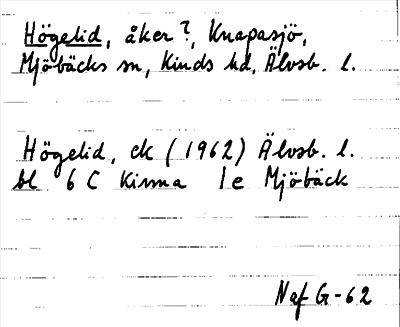 Högelid, åker?, Knapasjö,
Mjöbäcks sn, Kinds hd, Älvsb. l.
Högelid, ek (1962) Älvsb. l.
bl 6 C Kinna 1 e Mjöbäck
Naf G-62